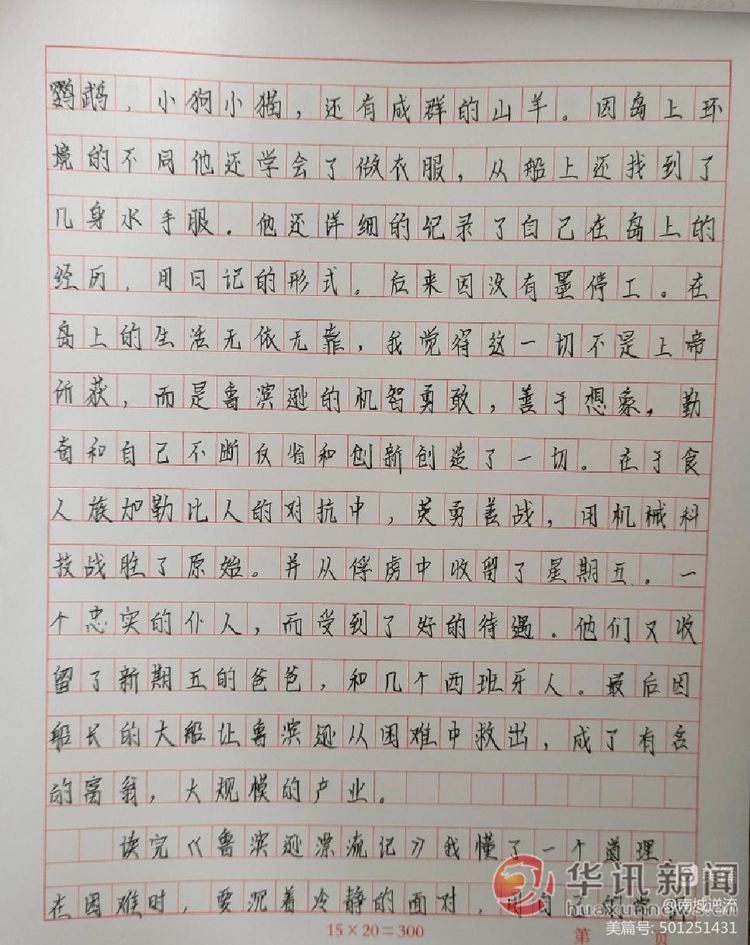 鹦鹉，小狗小猫，还有成群的山羊。因岛上环
境的不同他还学会了做衣服，从船上还找到了
几身水手服。他还详细的记录了自己在岛上的
经历，用日记的形式。后来因没有墨停工。在
岛上的生活无依无靠，我觉得这一切不是上帝
所获，而是鲁滨逊的机智勇敢，善于想象，勤
奋和自己不断反省和创新创造了一切。在于食
人族加勒比人的对抗中，英勇善战，用机械科
技战胜了原始。并从俘虏中收留了星期五。一
个忠实的仆人，而受到了好的待遇。他们又收
留了新期五的爸爸，和几个西班牙人。最后因
船长的大船让鲁滨逊从困难中救出，成了有名
的富翁，大规模的产业。
读完《鲁滨逊漂流记》我懂了一个道理
在困难时，要沉着冷静的面对，用自己的
15×20=300
第
华讯新闻
huaxunnews.cn
@南城逆流
美篇号: 501251431